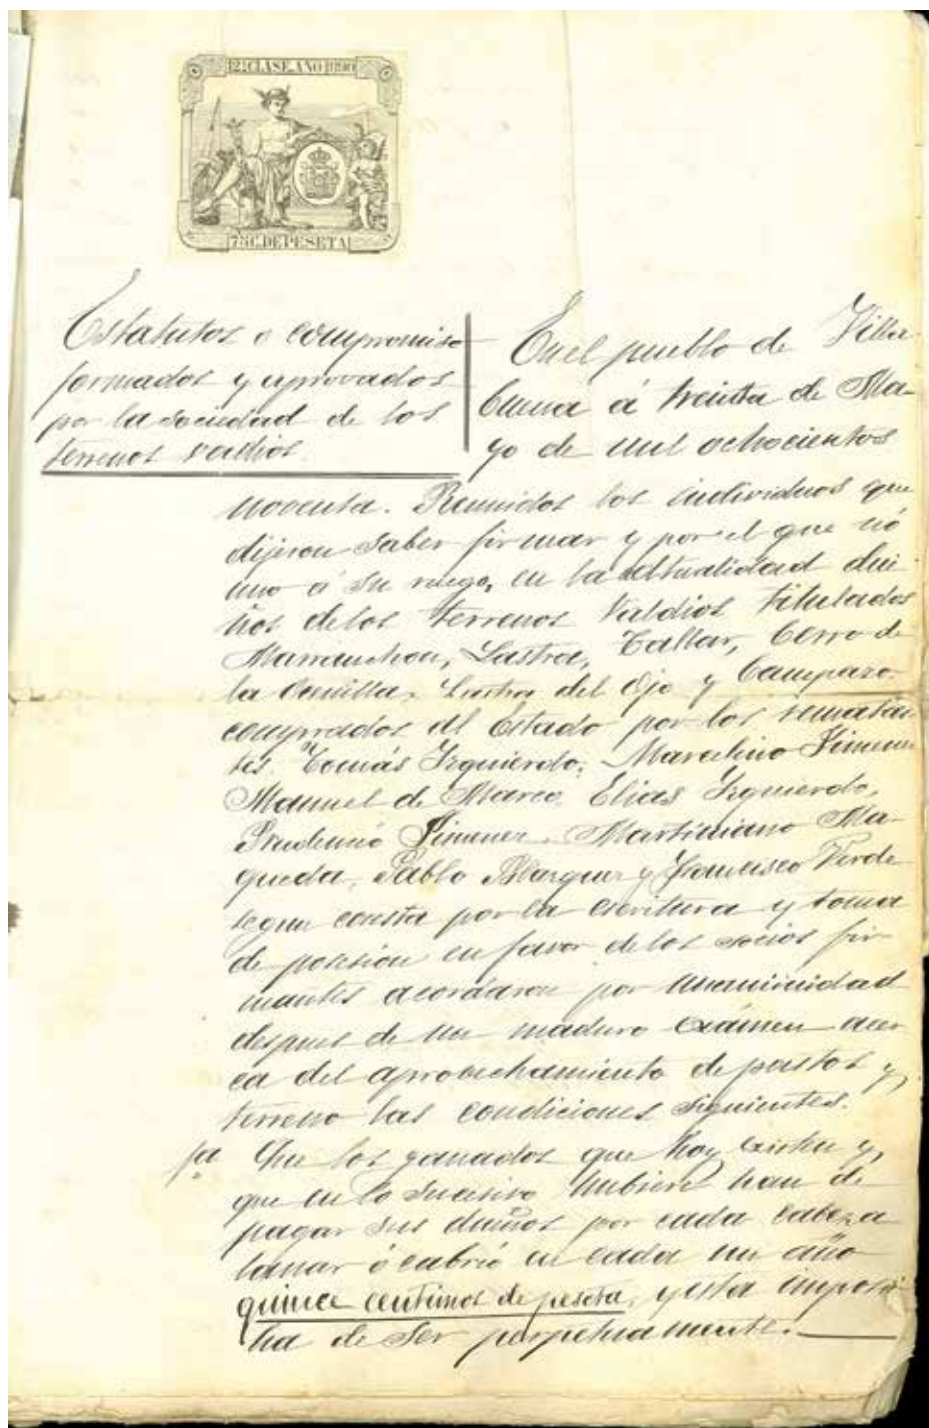 12ª CLASE AÑO 1890
75 C. DE PESETA
Estatutos o compromiso
formados y aprovados
por la sociedad de los
terrenos valdios.
En el pueblo de Villa
buena á treinta de Ma-
yo de mil ochocientos
noventa. Reunidos los individuos que
dijeron saber firmar y por el que nó
uno á su ruego, en la actualidad due
ños de los terrenos Valdios titulados
Maranchon, Lastra, Tallar, Cerro de
la Lastra del Ojo y Campazo
comprados al Estado por los rematan
tes. Tomás Izquierdo, Marcelino Jimenez
Manuel de Marco. Elias Izquierdo,
Prudencio Jimenez. Martiniano Ma-
queda, Pablo Blazquez y Francisco Verde
segun consta por la escritura y toma
de posesion en favor de los socios fir
mantes acordaron por unanimidad
despues de un maduro exámen acer
ca del aprovechamiento de pastos y
terreno las condiciones siguientes.
1ª Que los ganados que hoy existen y,
que en lo sucesivo hubiere han de
pagar sus dueños por cada cabeza
lanar ó cabrio en cada un año
quince centimos de peseta, y esta
ha de ser perpetuamente.